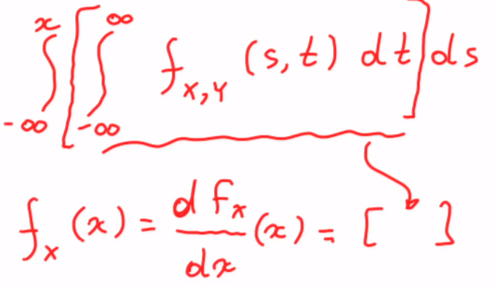 ∫_{-∞}^{x} [ ∫_{-∞}^{∞} f_{X,Y} (s,t) dt ] ds
f_x (x) = \frac{d f_x}{dx} (x) = [ ]